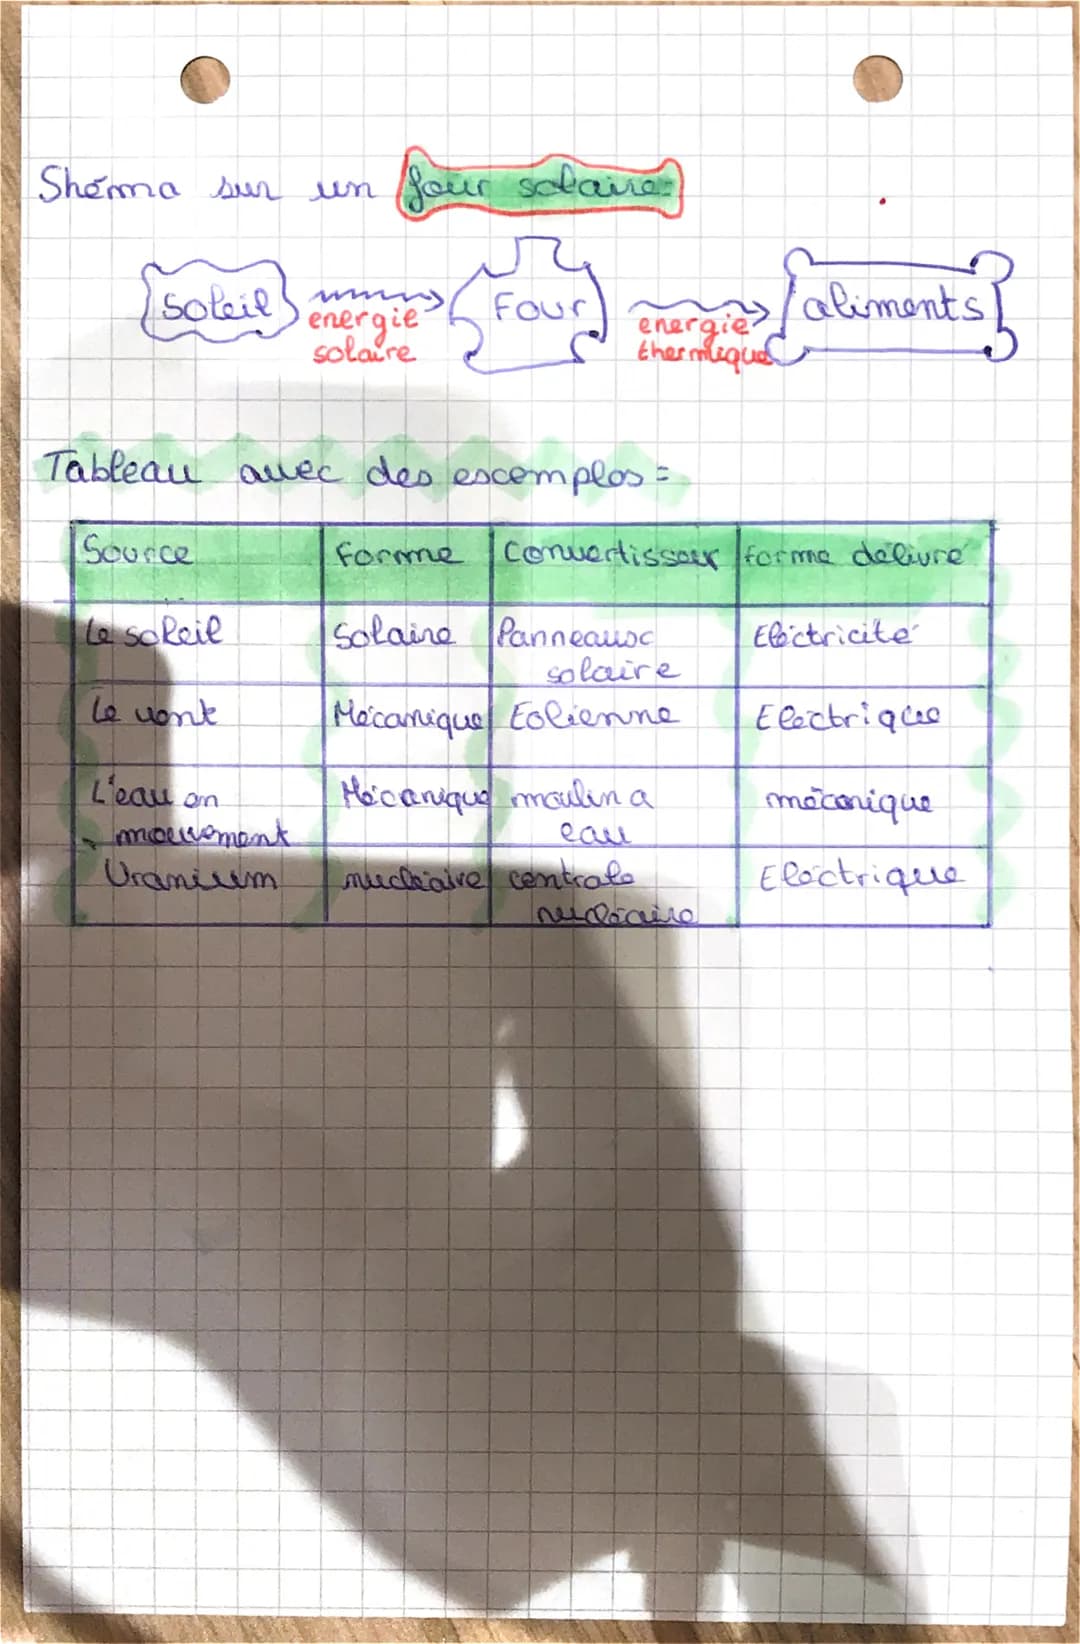 Shéma sur un four solaire:
Soleil energie solaire Four energie thermique aliments
Tableau avec des escemplos =
Source Forme Convertisseur forme délivré
Le soleil Solaire Panneaux solaire Electricité
Le vent Mécanique Eolienne Electrique
L'eau en mouvement Mécanique moulin a eau mécanique
Uranium nucléaire centrale nucléaire Electrique